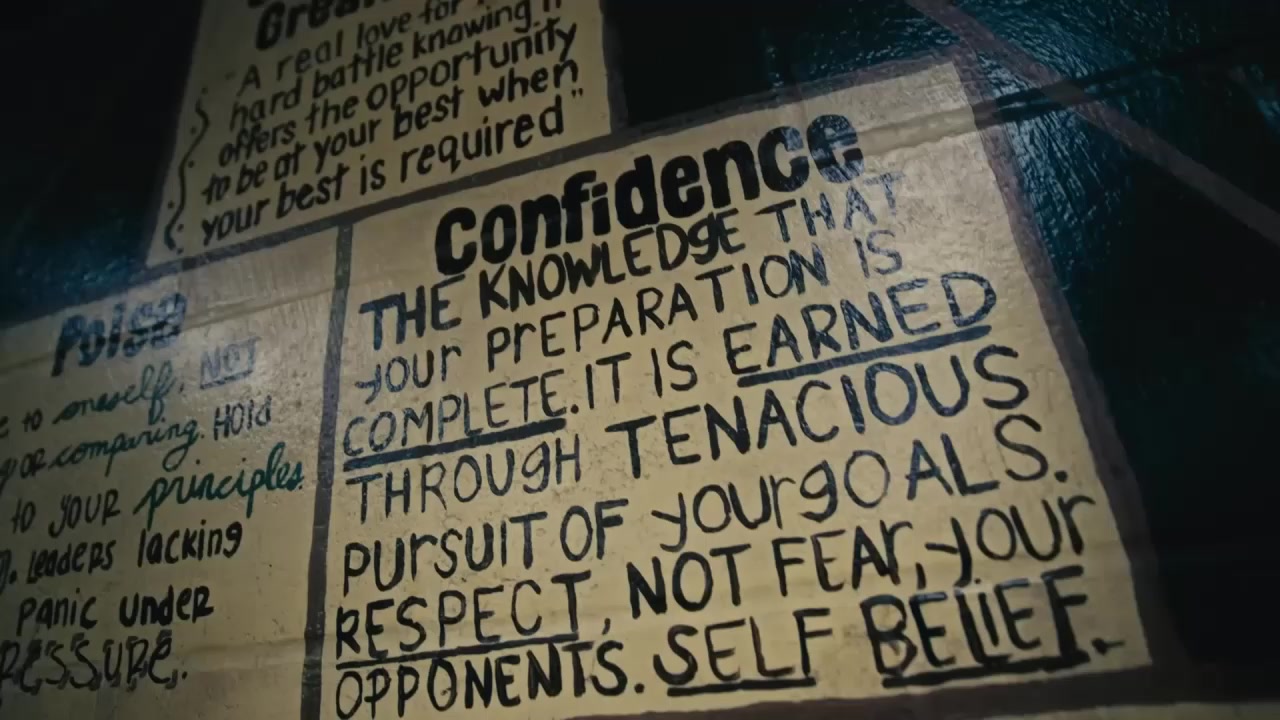 "A real love for
hard battle knowing it
offers the opportunity
to be at your best when
your best is required"
Confidence
THE KNOWLEDGE THAT
your PREPARATION IS
COMPLETE. IT IS EARNED
THROUGH TENACIOUS
PURSUIT OF your gOALS.
RESPECT, NOT FEAr, your
OPPONENTS. SELF BELIEF.
Poise
to oneself. NOT
or comparing. HOld
to your principles.
Leaders lacking
Panic under
PRESSURE.